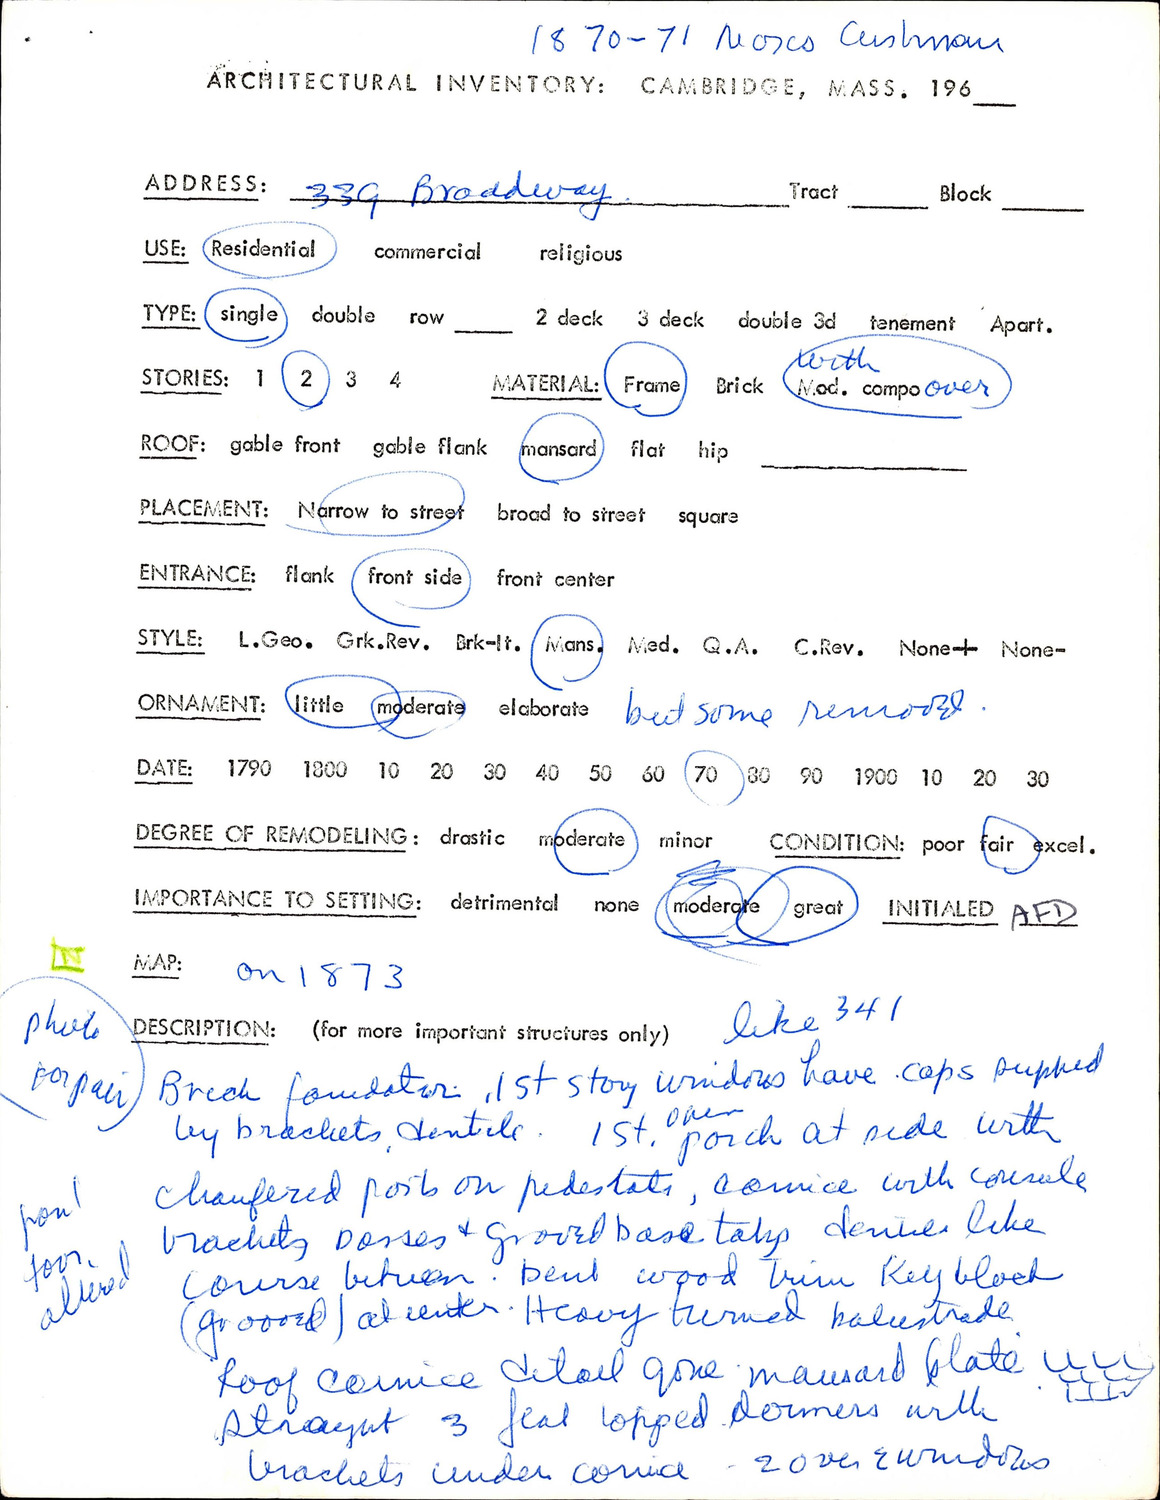 1870-71 Cushman
ARCHITECTURAL INVENTORY: CAMBRIDGE, MASS. 196___
ADDRESS: 339 Broadway. Tract ____ Block ____
USE: Residential commercial religious
TYPE: single double row ____ 2 deck 3 deck double 3d tenement Apart.
with
STORIES: 1 2 3 4 MATERIAL: Frame Brick Mod. compo over
ROOF: gable front gable flank mansard flat hip ____
PLACEMENT: Narrow to street broad to street square
ENTRANCE: flank front side front center
STYLE: L.Geo. Grk.Rev. Brk-It. Mans. Med. Q.A. C.Rev. None+ None-
ORNAMENT: little moderate elaborate but some removed.
DATE: 1790 1800 10 20 30 40 50 60 70 80 90 1900 10 20 30
DEGREE OF REMODELING: drastic moderate minor CONDITION: poor fair excel.
IMPORTANCE TO SETTING: detrimental none moderate great INITIALED AFD
N
MAP: on 1873
photo
for pair
DESCRIPTION: (for more important structures only) like 341
foundation, 1st story windows have caps
by brackets, 1st. open porch at side with
chamfered posts on pedestals, cornice with console
brackets bosses + grooved
course between. wood trim Keyblock
(grooved) at center. Heavy turned balustrade
altered
Roof cornice detail gone mansard slate
straight 3 flat topped dormers with
brackets under cornice - 2 over 2 windows